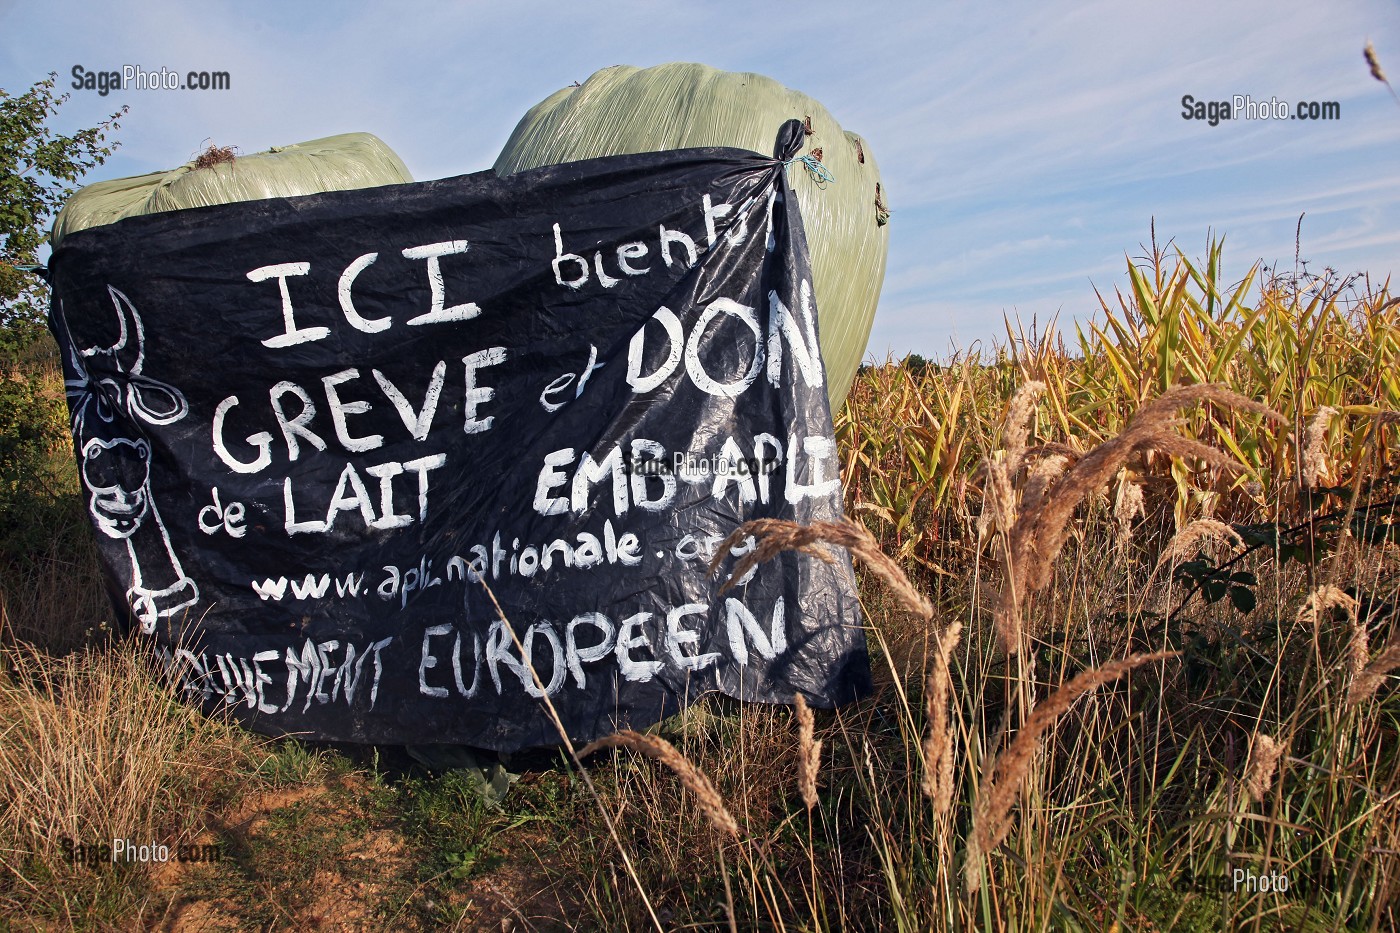 SagaPhoto.com
SagaPhoto.com
ICI bientôt
GREVE et DON
de LAIT EMB-APLI
SagaPhoto.com
www.apli.nationale.org
MOUVEMENT EUROPEEN
SagaPhoto.com
SagaPhoto.com